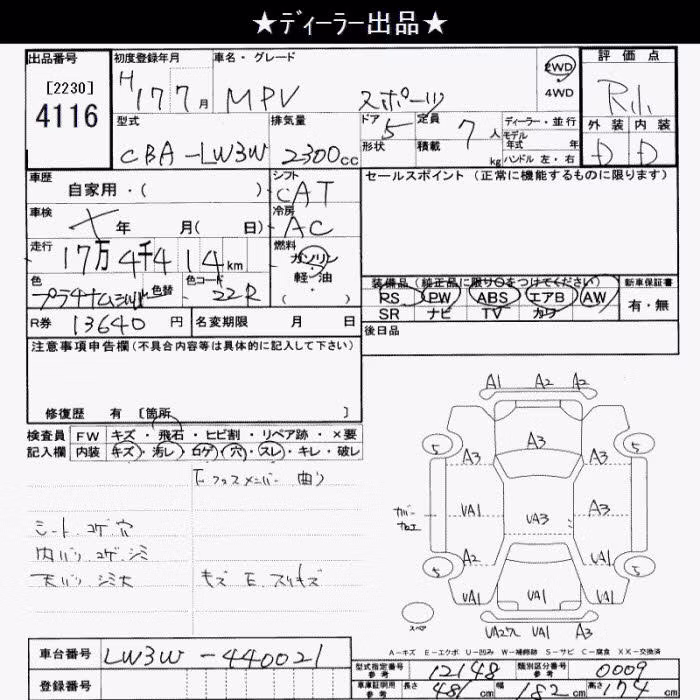 ★ディーラー出品★
出品番号 初度登録年月 車名・グレード 2WD 評価点
[2230] H 17 7月 MPV スポーツ 4WD
4116 型式 排気量 ドア 定員 ディーラー・並行 外装 内装
CBA-LW3W 2300cc 5 7人 モデル年式 年 D D
形状 積載 kg ハンドル 左・右
車歴 シフト セールスポイント(正常に機能するものに限ります)
自家用・( ) CAT
車検 年 月( 日) 冷房 AC
走行 17万4千414km 燃料 ガソリン
色 色替 色コード 22R 軽・油
( )
装備品(純正品に限り○をつけてください) 新車保証書
RS PW ABS エアB AW 有・無
SR ナビ TV カワ
R券 13640円 名変期限 月 日 後日品
注意事項申告欄(不具合内容等は具体的に記入して下さい)
修復歴 有 [箇所 ]
検査員 FW キズ・飛石・ヒビ割・リペア跡・×要
記入欄 内装 キズ・汚レ・ロゲ・穴・スレ・キレ・破レ
シート コゲ 穴
内バリ コゲ シミ
天バリ シミ大
A1 A2 A2
5 A3 5
A3 A3
UA1 UA3 A3
A2 UA1
5 5
UA1 UA1 UA1
UA1 A3
スペア
A-キズ E-エクボ U-凹み W-補修跡 S-サビ C-腐食 XX-交換済
車台番号 LW3W-440021
型式指定番号 参考 12148 類別区分番号 参考 0009
登録番号
車庫証明用 参考 長さ 481cm 幅 182cm 高さ 174cm